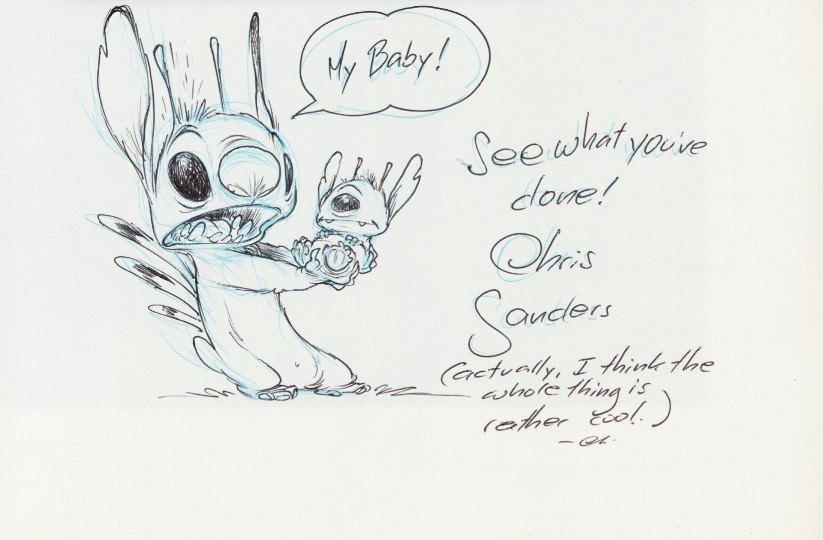 My Baby!
See what you've
done!
Chris
Sanders
(actually, I think the
whole thing is
rather cool.)